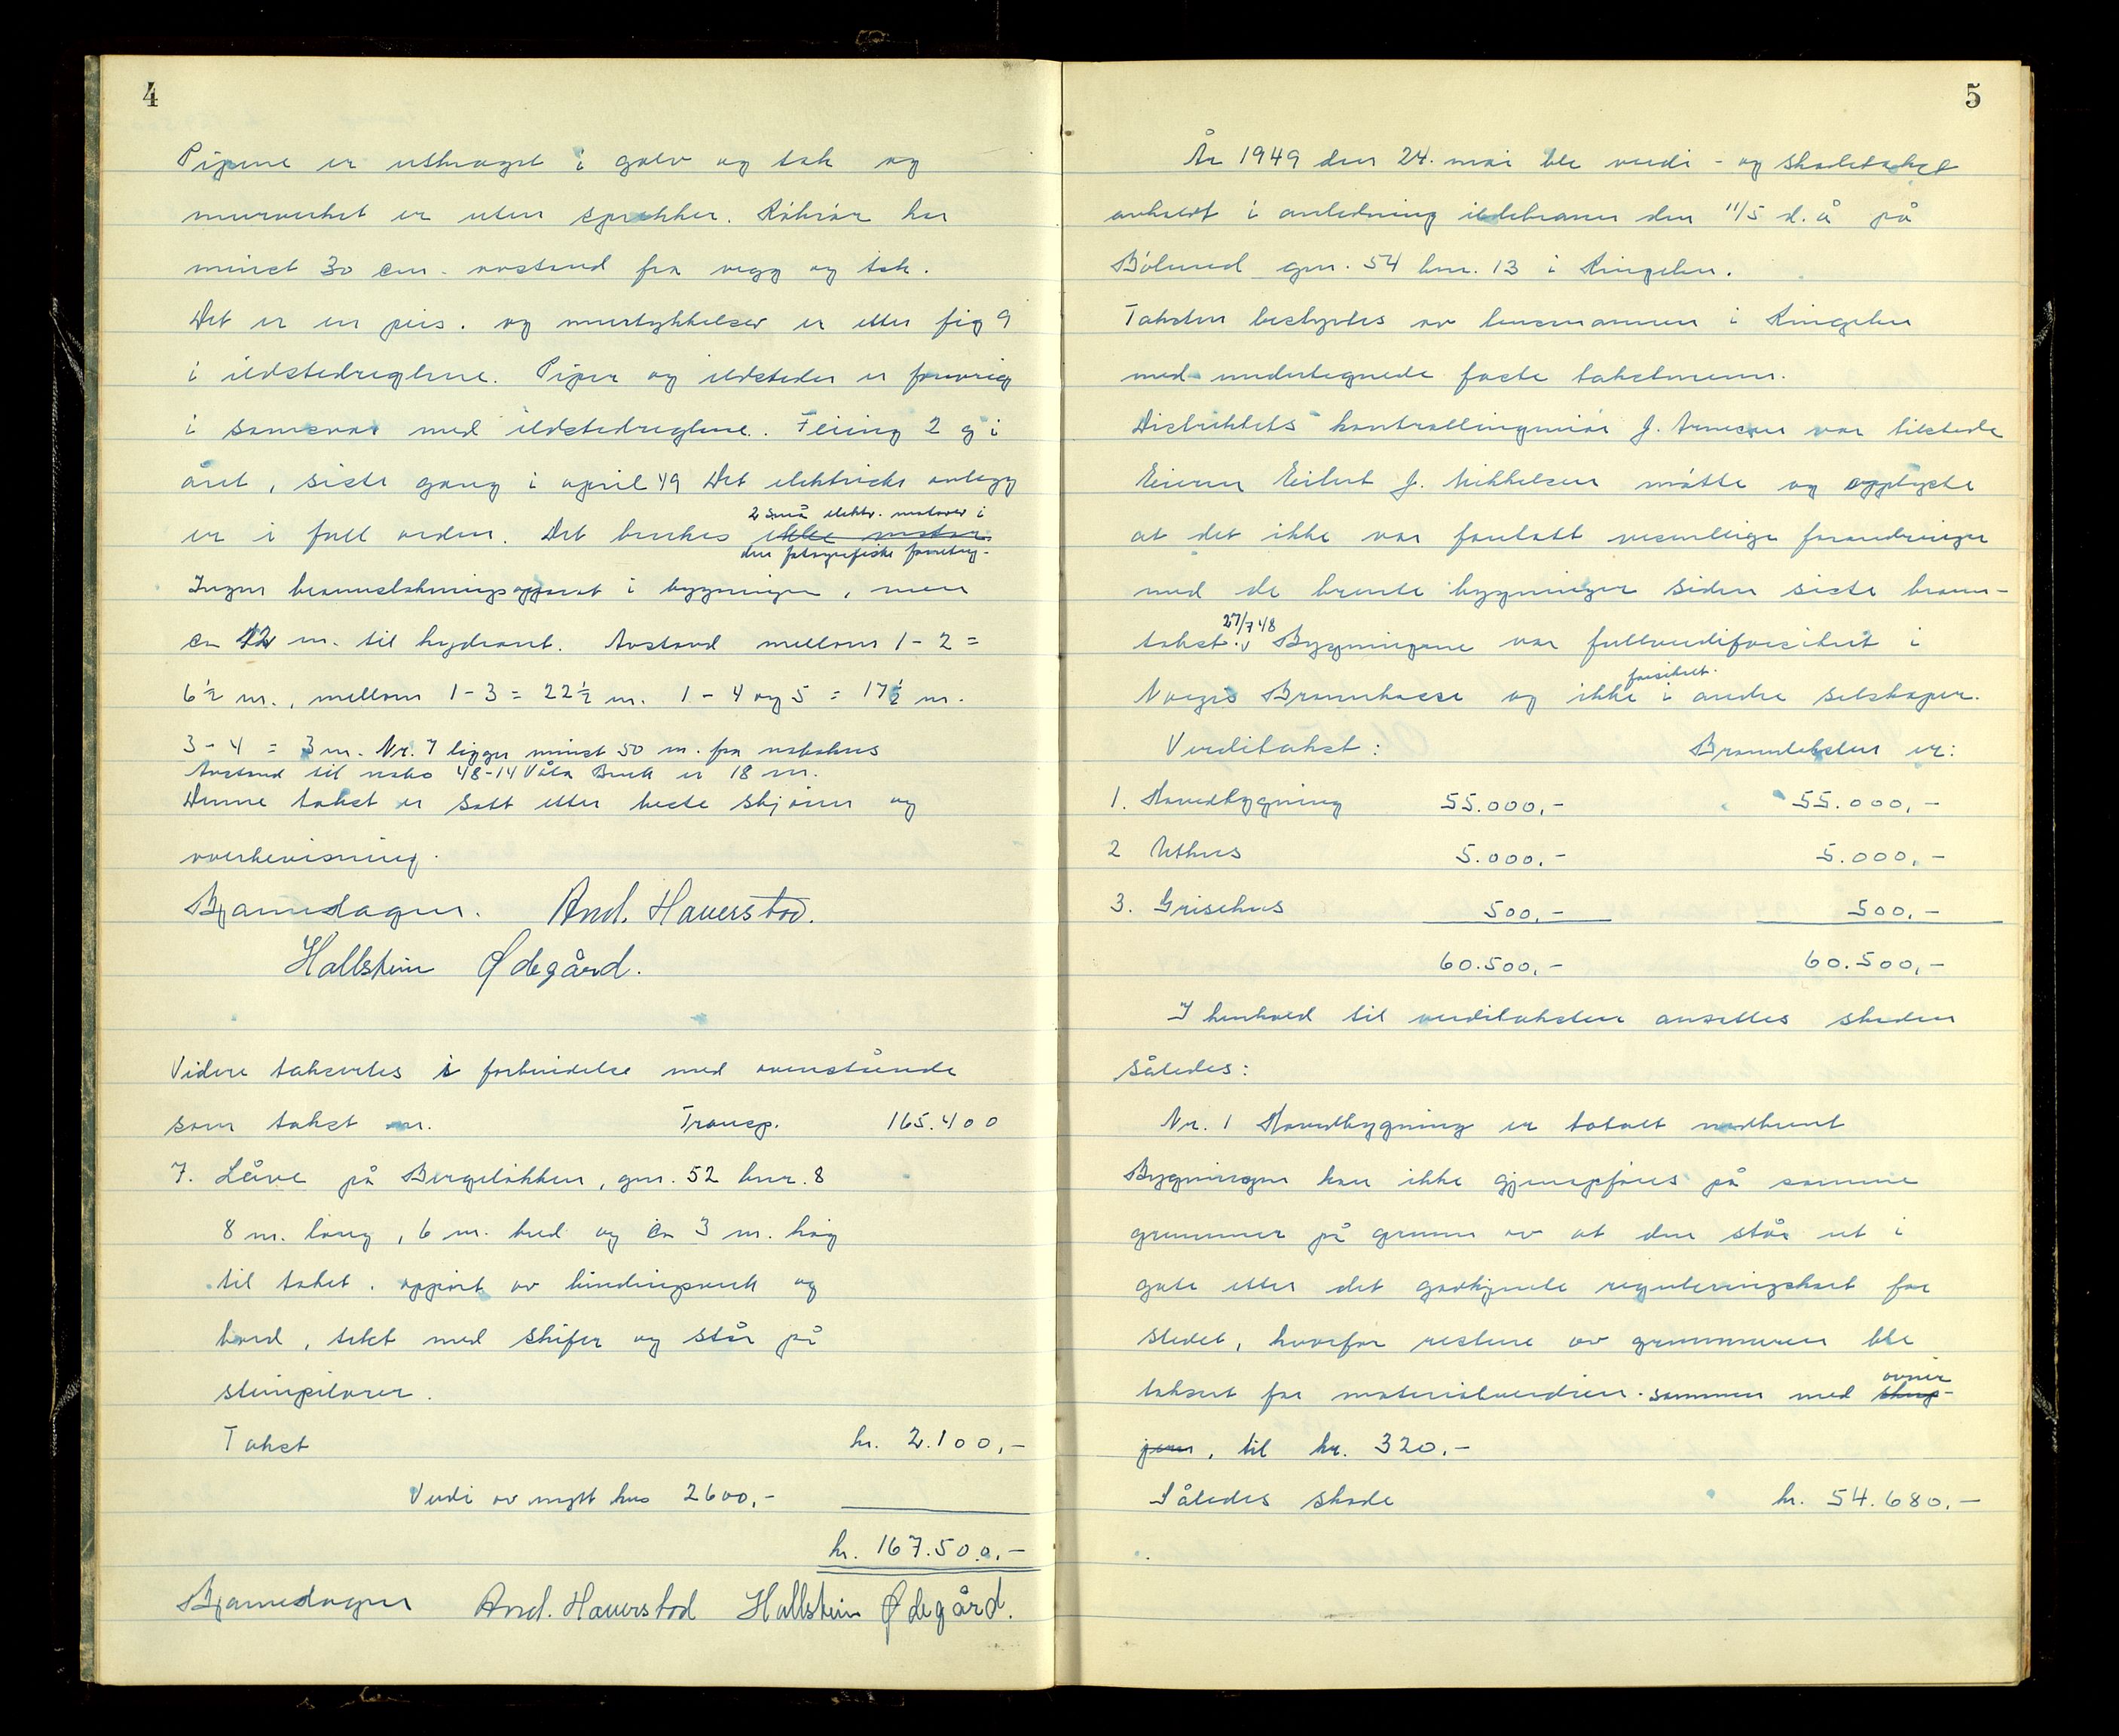 4
Pipene er utkraget i golv og tak og
murverket er uten sprekker. Råkrør har
minst 30 cm. avstand fra vegg og tak.
Det er en peis. og murtykkelser er etter fig 9
i ildstedreglene. Piper og ildsteder er forøvrig
i samsvar med ildstedreglene. Feiing 2 g i
året, siste gang i april 49 Det elektriske anlegg
2 små elektr. motorer i
er i full orden. Det brukes ikke motor.
den fotografiske forretng.
Ingen brannslukningsapparat i bygningen, men
ca 12 m. til hydrant. Avstand mellom 1 - 2 =
6 1/2 m., mellom 1 - 3 = 22 1/2 m. 1 - 4 og 5 = 17 1/2 m.
3 - 4 = 3 m. Nr. 7 ligger minst 50 m. fra nabohus
Avstand til nabo 48-14 Våla Bruk er 18 m.
Denne takst er satt etter beste skjønn og
overbevisning.
And. Haverstad.
Hallstein Ødegård.
Videre takseres i forbindelse med ovenstående
som takst nr. Transp. 165.400
7. Låve på Bergeløkken, gnr. 52 bnr. 8
8 m. lang, 6 m. bred og ca 3 m. høg
til taket. oppført av bindingsverk og
bord, tekt med skifer og står på
steinpilarer.
Takst kr. 2.100,-
Verdi av nytt hus 2600,-
kr. 167.500,-
And. Haverstad Hallstein Ødegård.
5
År 1949 den 24. mai ble verdi - og skadetakst
avholdt i anledning ildebrann den 11/5 d.å på
Bølund gnr. 54 bnr. 13 i Ringebu.
Taksten bestyrtes av lensmannen i Ringebu
med undertegnede faste takstmenn.
Distriktets kontrollingeniør J. Arnesen var tilstede
Eieren Eilert J. Mikkelsen møtte og opplyste
at det ikke var foretatt vesentlige forandringer
med de brente bygninger siden siste brann-
27/7 48
takst. Bygningene var fullverdiforsikret i
forsikret.
Norges Brannkasse og ikke i andre selskaper.
Verditakst: Branntaksten er:
1. Hovedbygning 55.000,- 55.000,-
2 Uthus 5.000,- 5.000,-
3. Grisehus 500,- 500,-
60.500,- 60.500,-
I henhold til verditaksten ansettes skaden
således:
Nr. 1 Hovedbygning er totalt nedbrent
Bygningen kan ikke gjenoppføres på samme
grunnmur på grunn av at den står ut i
gate etter det godkjente reguleringskart for
stedet, hvorfor restene av grunnmuren ble
ovner
taksert for materialverdien. sammen med skrap-
jern, til kr. 320.-
Således skade kr. 54.680.-